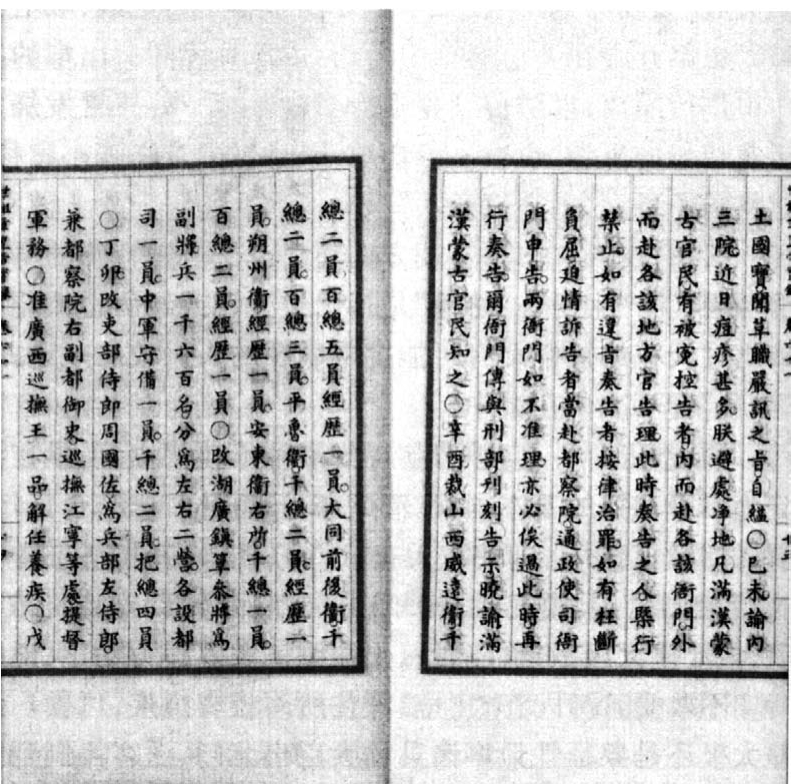 土國寶聞革職嚴訊之旨自縊○己未諭內
三院近日痘疹甚多朕避處凈地凡滿漢蒙
古官民有被寃控告者內而赴各該衙門外
而赴各該地方官告理此時奏告之人槩行
禁止如有違旨奏告者按律治罪如有枉斷
負屈迫情訴告者當赴都察院通政使司衙
門申告兩衙門如不准理亦必俟過此時再
行奏告爾衙門傳與刑部刋刻告示曉諭滿
漢蒙古官民知之○辛酉裁山西威遠衞千
總二員百總五員經歷一員大同前後衞千
總二員百總三員平魯衞千總二員經歷一
員朔州衞經歷一員安東衞右所千總一員
百總二員經歷一員○改湖廣鎮筸叅將爲
副將兵一千六百名分爲左右二營各設都
司一員中軍守備一員千總二員把總四員
○丁卯改吏部侍郎周國佐爲兵部左侍郎
兼都察院右副都御史巡撫江寧等處提督
軍務○准廣西巡撫王一品解任養疾○戊